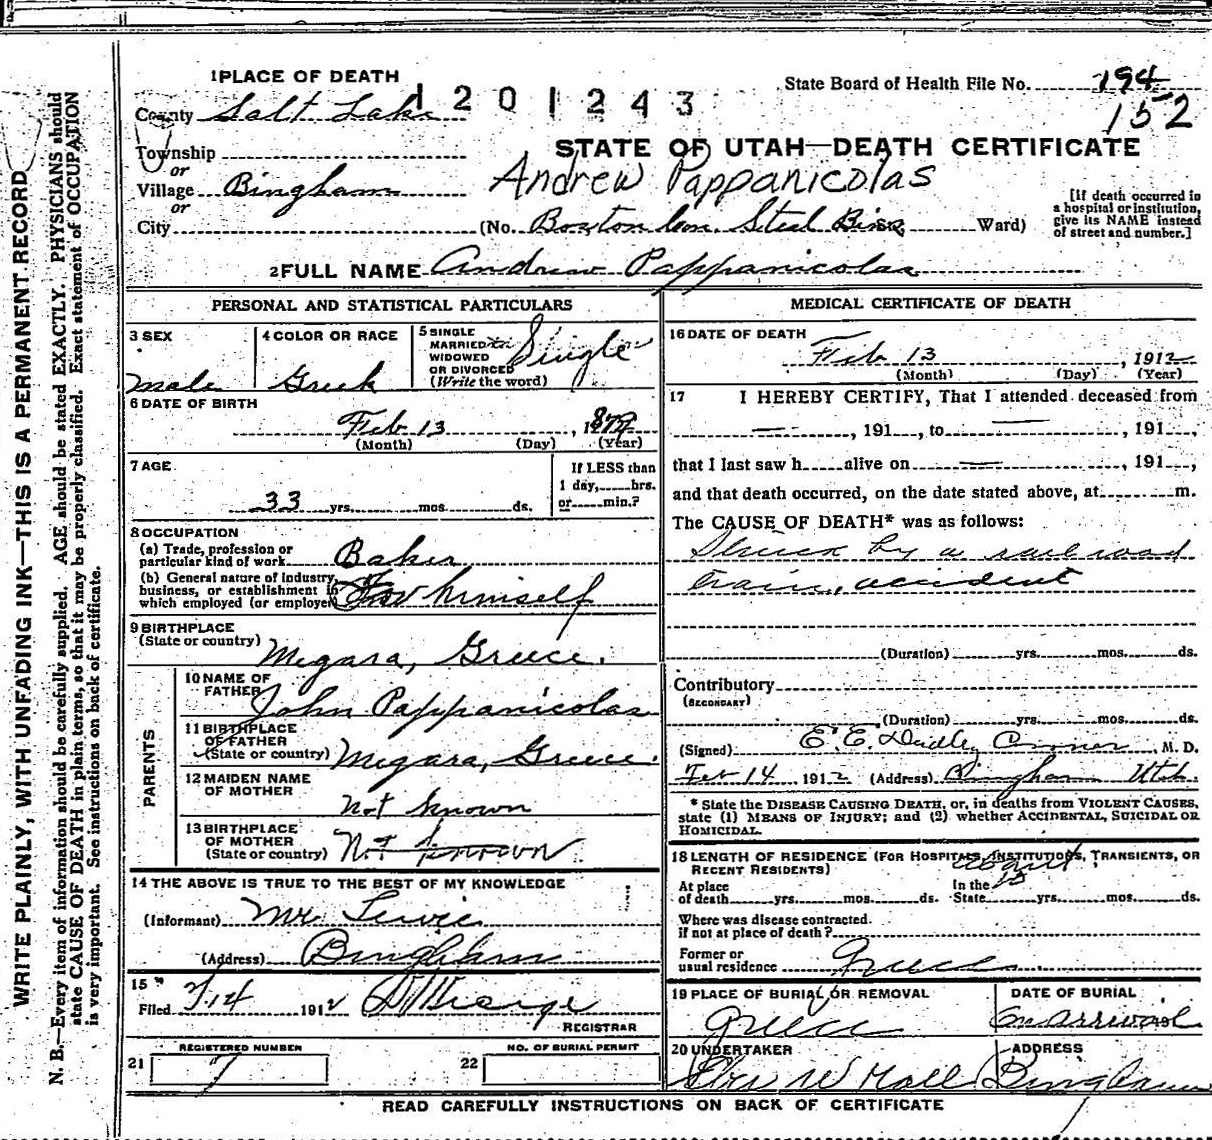 1 PLACE OF DEATH
1201243
State Board of Health File No. 194
152
County Salt Lake
Township
or
STATE OF UTAH—DEATH CERTIFICATE
Village Bingham
Andrew Pappanicolas
or
City (No. Boston Con. Ward)
[If death occurred in a hospital or institution, give its NAME instead of street and number.]
2 FULL NAME Andrew Pappanicolas
PERSONAL AND STATISTICAL PARTICULARS
3 SEX
male
4 COLOR OR RACE
Greek
5 SINGLE MARRIED WIDOWED OR DIVORCED (Write the word)
Single
6 DATE OF BIRTH
Feb 13
(Month) (Day) (Year)
7 AGE
33 yrs. mos. ds.
If LESS than 1 day, hrs. or min.?
8 OCCUPATION
(a) Trade, profession or particular kind of work Baker
(b) General nature of industry, business, or establishment in which employed (or employer) For himself
9 BIRTHPLACE
(State or country) Megara, Greece.
PARENTS
10 NAME OF FATHER John Pappanicolas
11 BIRTHPLACE OF FATHER (State or country) Megara, Greece.
12 MAIDEN NAME OF MOTHER
Not known
13 BIRTHPLACE OF MOTHER (State or country) Not known
14 THE ABOVE IS TRUE TO THE BEST OF MY KNOWLEDGE
(Informant) Mr
(Address) Bingham
15
Filed 2/14 1912
REGISTRAR
REGISTERED NUMBER
21 7
NO. OF BURIAL PERMIT
22
MEDICAL CERTIFICATE OF DEATH
16 DATE OF DEATH
Feb 13, 1912
(Month) (Day) (Year)
17 I HEREBY CERTIFY, That I attended deceased from
— , 191 , to — , 191 ,
that I last saw h alive on — , 191 ,
and that death occurred, on the date stated above, at m.
The CAUSE OF DEATH* was as follows:
Struck by a railroad
train, accident
(Duration) yrs. mos. ds.
Contributory
(SECONDARY)
(Duration) yrs. mos. ds.
(Signed) E. E. Dudley Coroner, M. D.
Feb 14, 1912 (Address) Bingham Utah.
* State the DISEASE CAUSING DEATH, or, in deaths from VIOLENT CAUSES, state (1) MEANS OF INJURY; and (2) whether ACCIDENTAL, SUICIDAL OR HOMICIDAL.
18 LENGTH OF RESIDENCE (FOR HOSPITALS, INSTITUTIONS, TRANSIENTS, OR RECENT RESIDENTS)
about
At place of death yrs. mos. ds. In the State yrs. mos. ds.
Where was disease contracted.
if not at place of death?
Former or usual residence Greece
19 PLACE OF BURIAL OR REMOVAL
Greece
DATE OF BURIAL
On arrival
20 UNDERTAKER
W Hall
ADDRESS
Bingham
READ CAREFULLY INSTRUCTIONS ON BACK OF CERTIFICATE
WRITE PLAINLY, WITH UNFADING INK—THIS IS A PERMANENT RECORD
N. B.—Every item of information should be carefully supplied. AGE should be stated EXACTLY. PHYSICIANS should
state CAUSE OF DEATH in plain terms, so that it may be properly classified. Exact statement of OCCUPATION
is very important. See instructions on back of certificate.